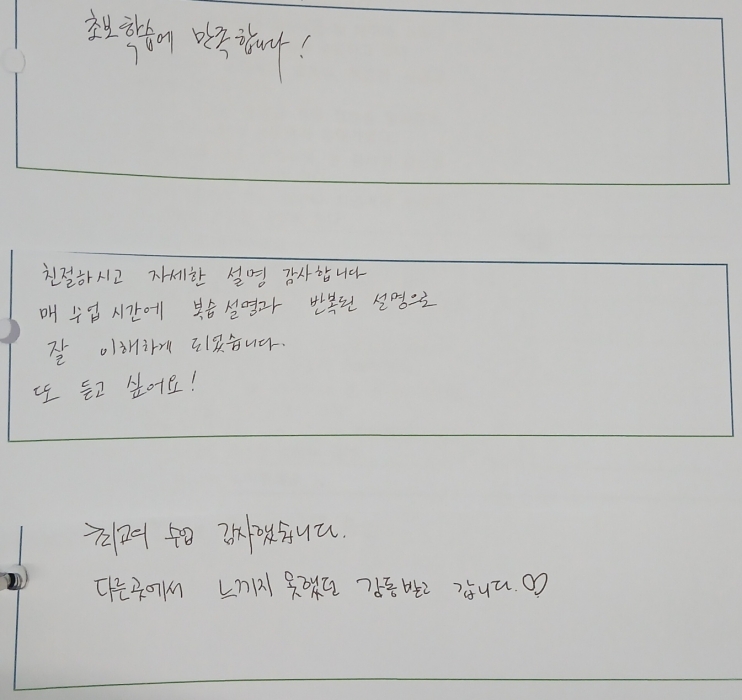 초보학습에 만족합니다!
친절하시고 자세한 설명 감사합니다
매 수업 시간에 복습설명과 반복된 설명으로
잘 이해하게 되었습니다.
또 듣고 싶어요!
최고의 수업 감사했습니다.
다른곳에서 느끼지 못했던 감동받고 갑니다.♡